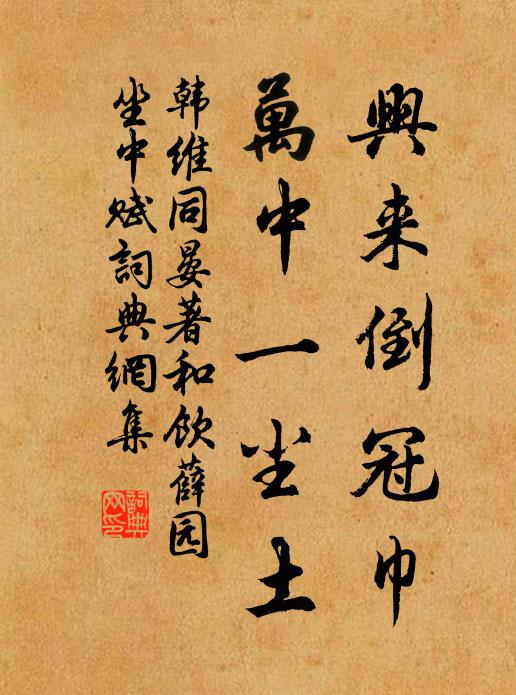 興来倒冠巾
萬中一尘土
韩维同晏著和饮薛园
坐中赋詞典網集
詞典
网印